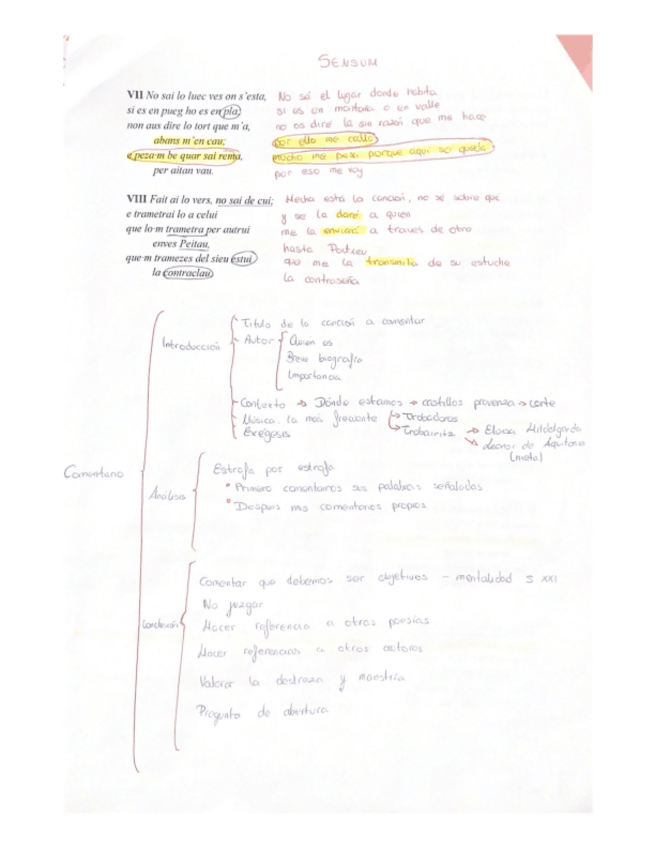 SENSUM
VII No sai lo luec ves on s'esta,
si es en pueg ho es en pla;
non aus dire lo tort que m'a,
abans m'en cau;
e peza·m be quar sai rema,
per aitan vau.
No sé el lugar donde habita
si es en montaña o en valle
no os diré la sin razón que me hace
por ello me callo
mucho me pesa porque aqui se queda
por eso me voy
VIII Fait ai lo vers, no sai de cui;
e trametrai lo a celui
que lo·m trametra per autrui
enves Peitau,
que·m tramezes del sieu estui
la contraclau.
Hecha está la canción, no sé sobre que
y se la daré a quien
me la enviará a traves de otro
hasta
que me la transmita de su estuche
la contraseña
Comentario
Introducción
Título de la canción a comentar
Autor
Quién es
Breve biografia
Importancia
Contexto → Dónde estamos → castillos provenza → corte
Música. la más frecuente
Trobadores
Trobairitz → Eloisa Hildelgarda
Leonor de Aquitania
(meta)
Exégesis
Análisis
Estrofa por estrofa
• Primero comentamos sus palabras señaladas
• Después mis comentarios propios
Conclusión
Comentar que debemos ser objetivos - mentalidad S XXI
No juzgar
Hacer referencia a otras poesías
Hacer referencias a otros autores
Valorar la destreza y maestría
Pregunta de abertura